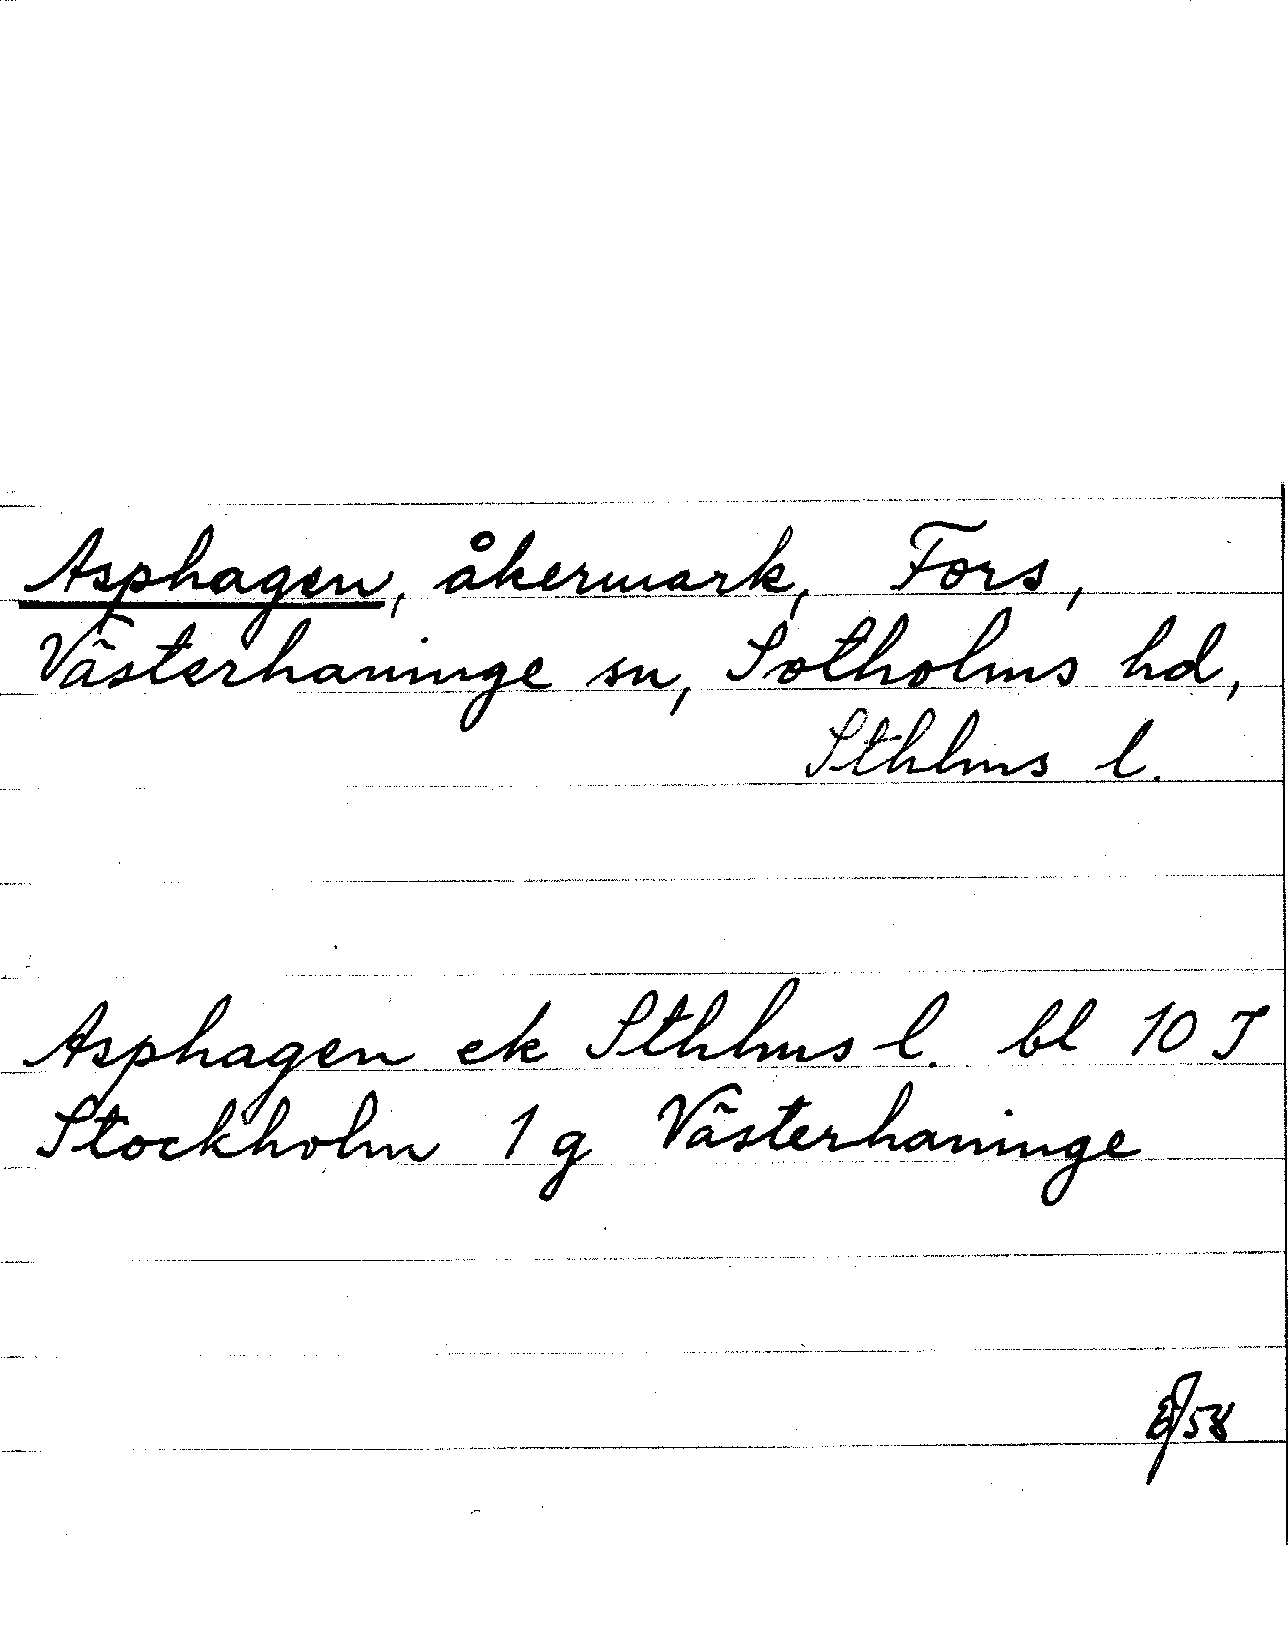 Asphagen, åkermark, Fors,
Västerhaninge sn, Sotholms hd,
Sthlms l.
Asphagen ek Sthlms l. bl 10 J
Stockholm 1 g Västerhaninge
58